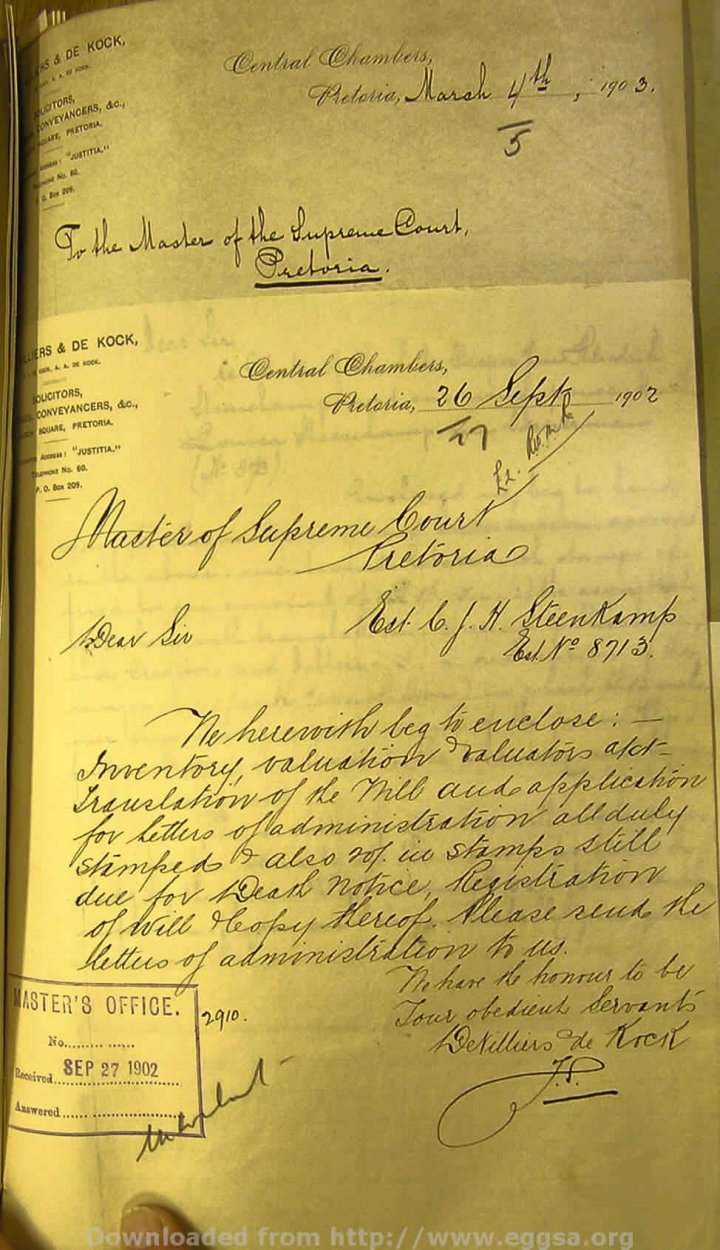 RS & DE KOCK,
SOLICITORS,
CONVEYANCERS, &c.,
SQUARE, PRETORIA.
ADDRESS: "JUSTITIA."
TELEPHONE No. 60.
P. O. Box 209.
Central Chambers,
Pretoria, March 4th, 1903.
5
To the Master of the Supreme Court,
Pretoria.
LIERS & DE KOCK,
KOCK, A. A. DE KOCK.
SOLICITORS,
CONVEYANCERS, &c.,
SQUARE, PRETORIA.
ADDRESS: "JUSTITIA."
TELEPHONE No. 60.
P. O. Box 209.
Central Chambers,
Pretoria, 26 Sept 1902
27
Master of Supreme Court
Pretoria
Dear Sir
Est. C. J. H. Steenkamp
Est. No 8713.
We herewith beg to enclose: —
Inventory, valuation & valuators acct
Translation of the Will and application
for letters of administration all duly
stamped & also 20/. in stamps still
due for Death notice, Registration
of Will & Copy thereof. Please send the
letters of administration to us.
We have the honour to be
Your obedient Servants
De Villiers & de Kock
MASTER'S OFFICE.
No.
Received SEP 27 1902
Answered
2910.
Downloaded from http://www.eggsa.org